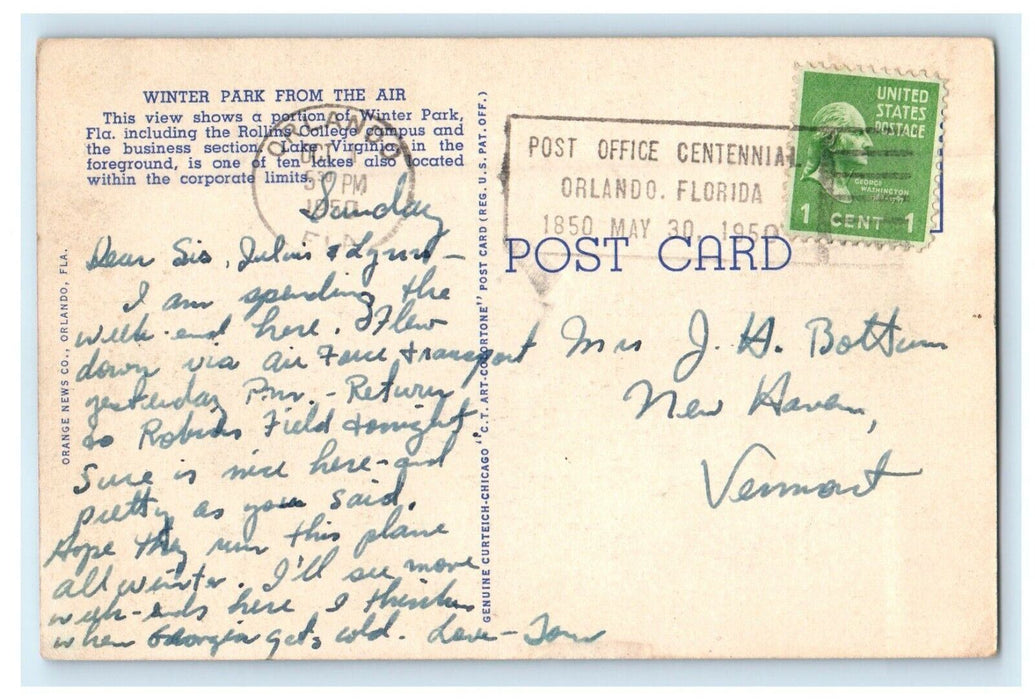 WINTER PARK FROM THE AIR
This view shows a portion of Winter Park,
Fla. including the Rollins College campus and
the business section. Lake Virginia, in the
foreground, is one of ten lakes also located
within the corporate limits.
ORLANDO
OCT 1
5 30 PM
1950
FLA.
POST OFFICE CENTENNIAL
ORLANDO, FLORIDA
1850 MAY 30, 1950
UNITED
STATES
POSTAGE
GEORGE
WASHINGTON
1 CENT 1
POST CARD
Sunday
Dear Sis, Julius & Lynn –
I am spending the
week-end here. Flew
down via Air Force transport
yesterday P.m. – Return
to Robins Field tonight.
Sure is nice here – and
pretty as you said.
Hope they run this plane
all winter. I'll see more
week-ends here I think
when Georgia gets cold. Love – Tom
Mrs J. H. Bottum
New Haven,
Vermont
ORANGE NEWS CO., ORLANDO, FLA.
GENUINE CURTEICH-CHICAGO "C.T. ART-COLORTONE" POST CARD (REG. U.S. PAT. OFF.)